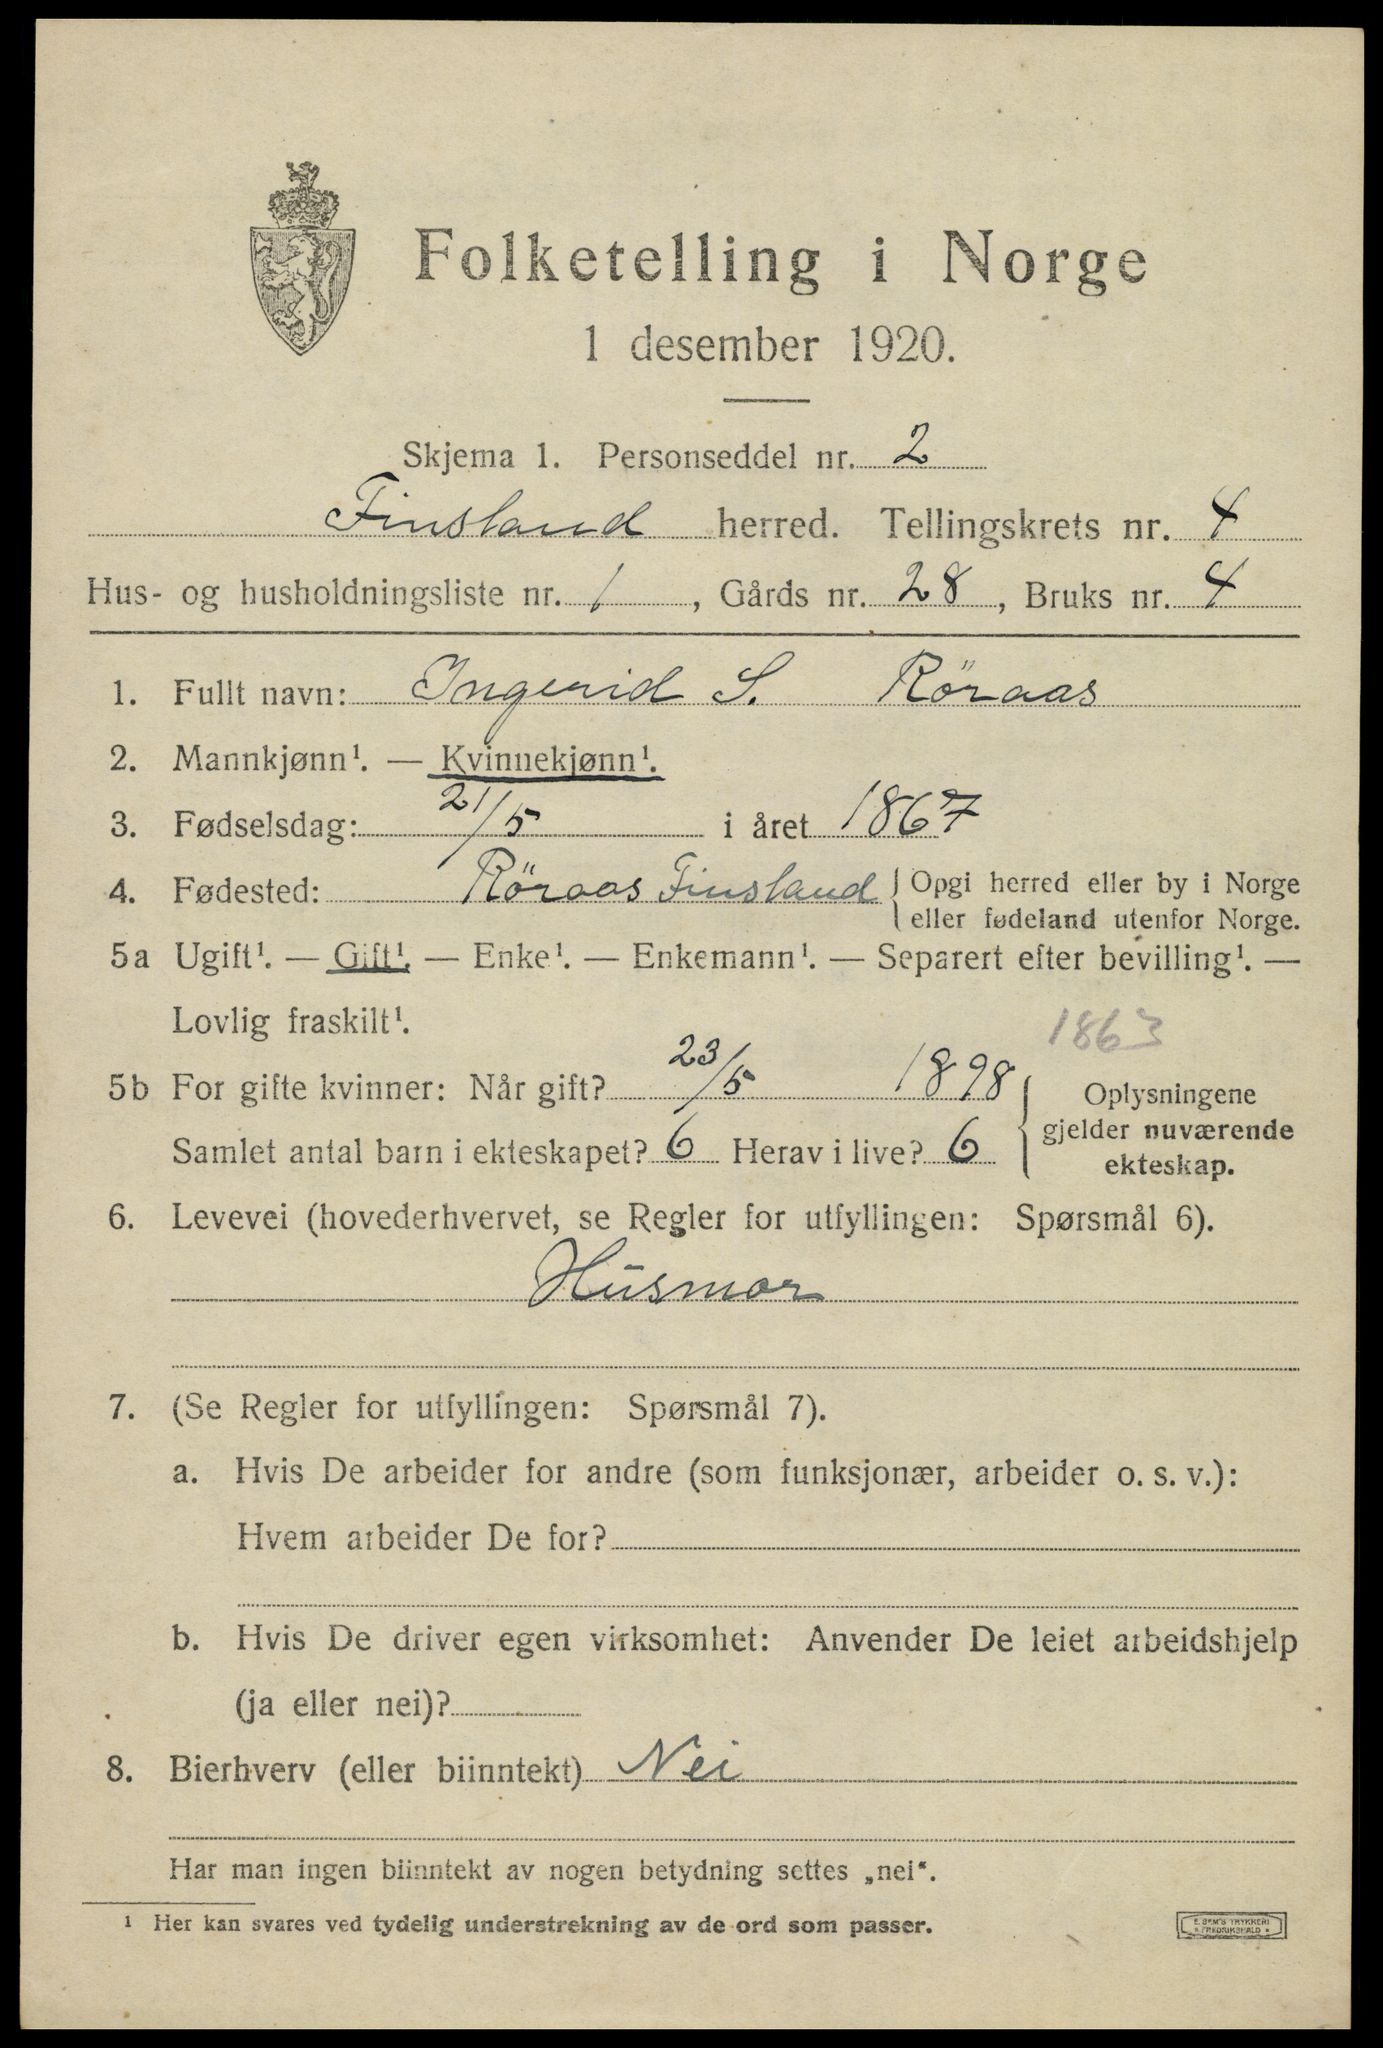 Folketelling i Norge
1 desember 1920.
Skjema 1. Personseddel nr. 2
Finsland herred. Tellingskrets nr. 4
Hus- og husholdningsliste nr. 1, Gårds nr. 28, Bruks nr. 4
1. Fullt navn: Ingerid S. Röraas
2. Mannkjønn¹. — Kvinnekjønn¹.
3. Fødselsdag: 21/5 i året 1867
4. Fødested: Röraas Finsland { Opgi herred eller by i Norge
eller fødeland utenfor Norge.
5a Ugift¹. — Gift¹. — Enke¹. — Enkemann¹. — Separert efter bevilling¹. —
Lovlig fraskilt¹.
1863
5b For gifte kvinner: Når gift? 23/5 1898
Samlet antal barn i ekteskapet? 6 Herav i live? 6
Oplysningene
gjelder nuværende
ekteskap.
6. Levevei (hovederhvervet, se Regler for utfyllingen: Spørsmål 6).
Husmor
7. (Se Regler for utfyllingen: Spørsmål 7).
a. Hvis De arbeider for andre (som funksjonær, arbeider o. s. v.):
Hvem arbeider De for?
b. Hvis De driver egen virksomhet: Anvender De leiet arbeidshjelp
(ja eller nei)?
8. Bierhverv (eller biinntekt) Nei
Har man ingen biinntekt av nogen betydning settes „nei“.
¹ Her kan svares ved tydelig understrekning av de ord som passer.
E. SEM'S TRYKKERI
FREDRIKSHALD